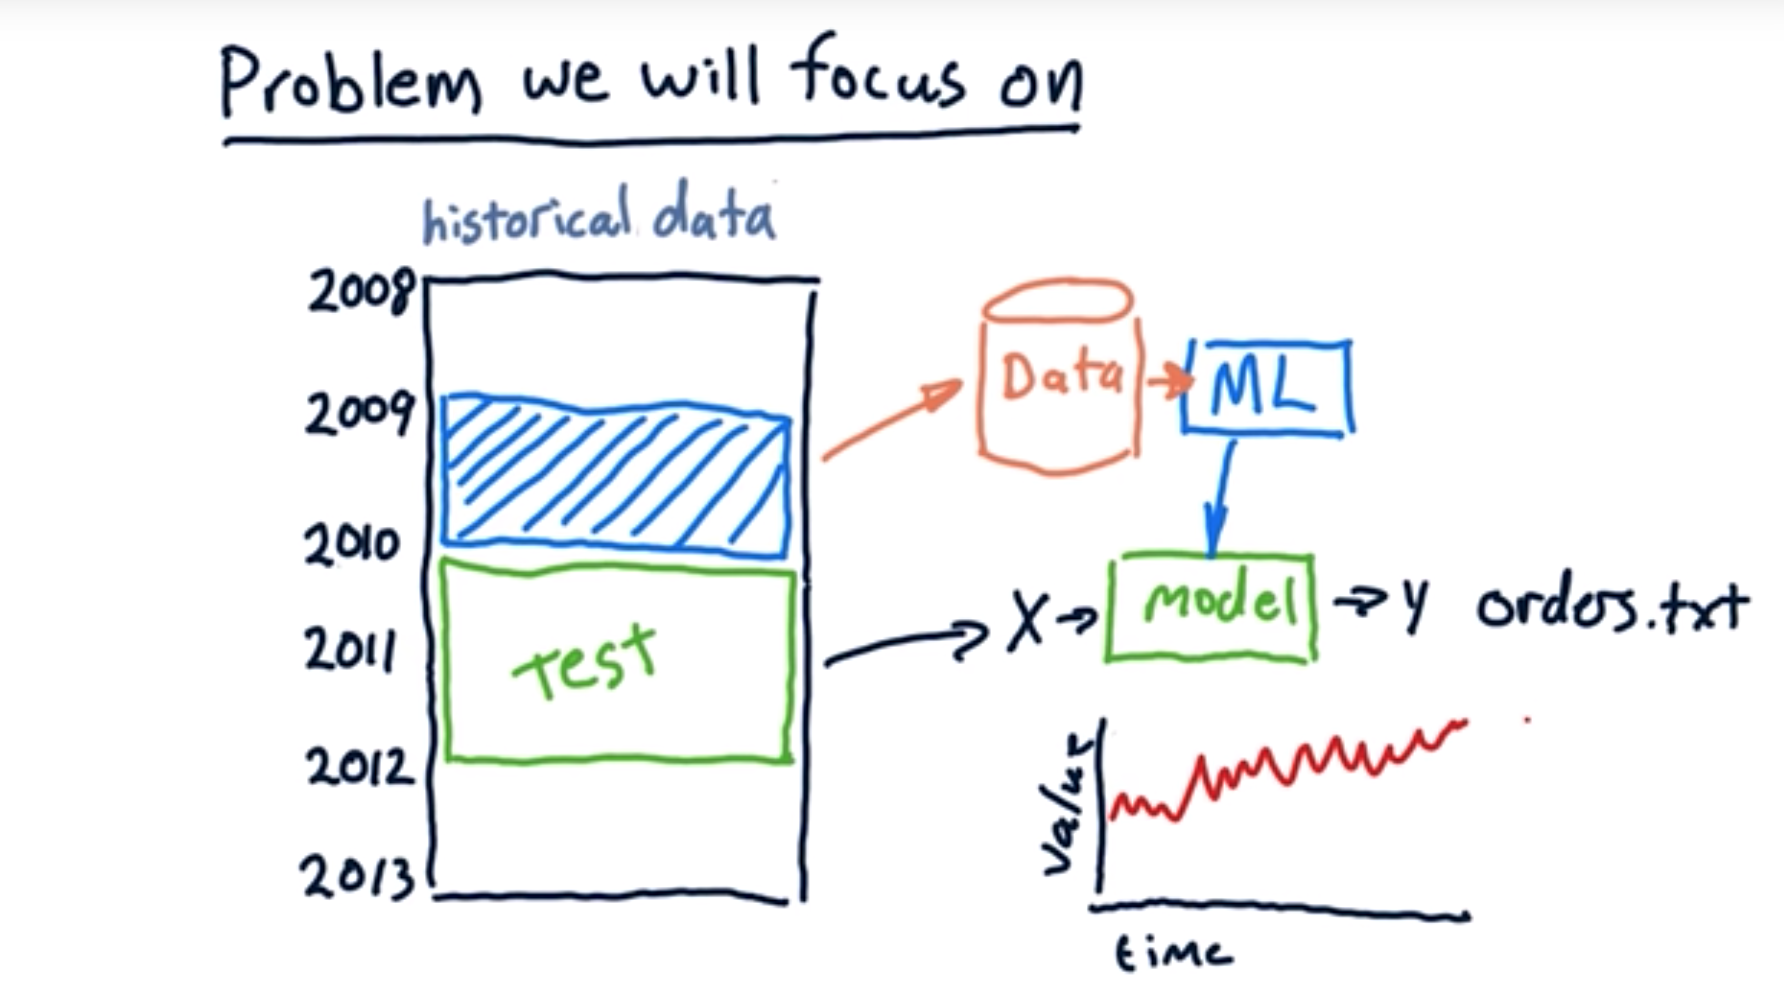 Problem we will focus on
historical data
2008
2009
2010
2011
2012
2013
Test
Data
ML
X
model
Y orders.txt
value
time